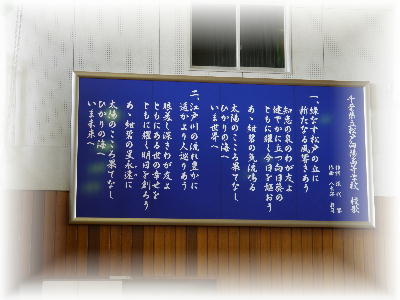 千葉県立松戸向陽高等学校 校歌
作詞
作曲
一、緑なす松戸の丘に
新たなる風響きあう
知恵の泉わが友よ
健やかに立つ向日葵の
ともに耀く今日を謳おう
あゝ紺碧の気流鳴る
太陽のこころ果てなし
ひかりの海へ
いま世界へ
二、江戸川の流れ豊かに
遥かより人巡りあう
眼差し深きわが友よ
ともにある世の幸せを
ともに耀く明日を創ろう
あゝ紺碧の星永遠に
太陽のこころ果てなし
ひかりの海へ
いま未来へ